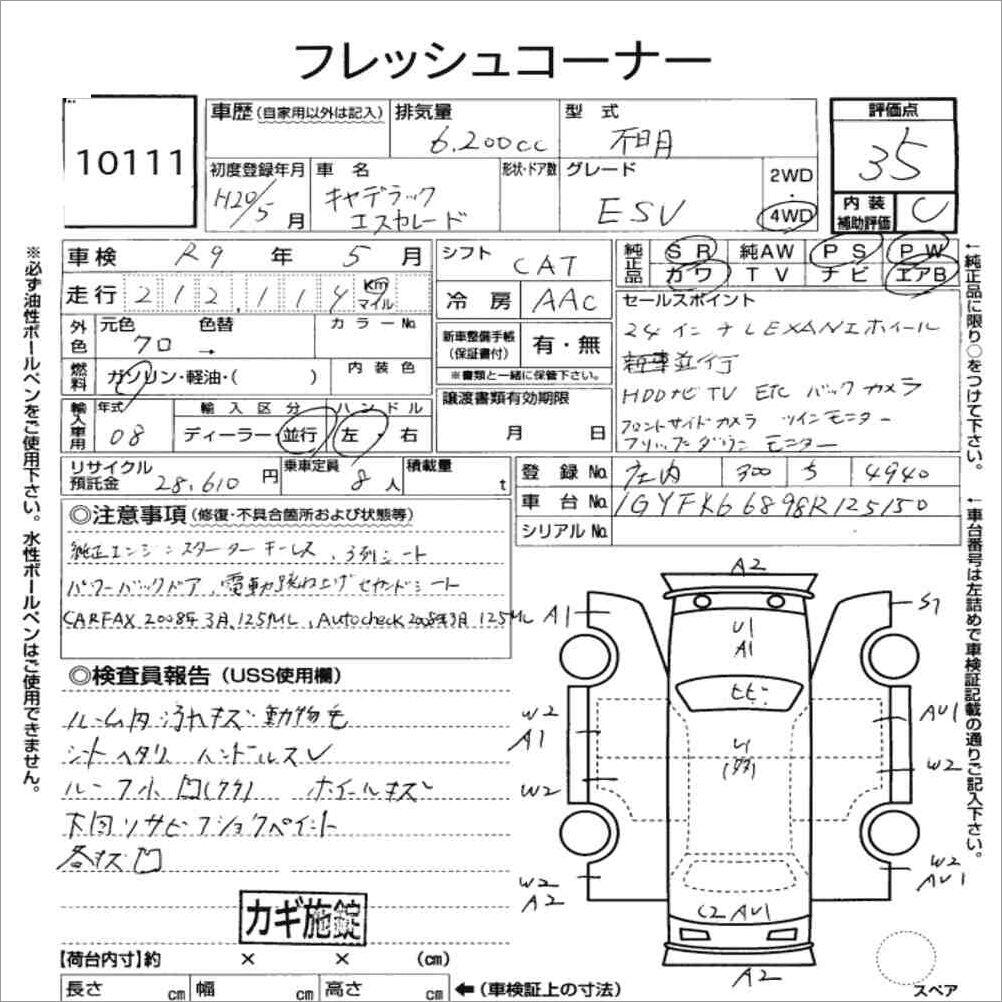 フレッシュコーナー
10111
車歴 (自家用以外は記入)
排気量 6.200cc
型式 不明
評価点 35
初度登録年月 H20/5月
車名 キャデラック エスカレード
形状・ドア数
グレード ESV
2WD・4WD
内装補助評価 C
車検 R9年 5月
シフト CAT
純正品 SR 純AW PS PW
カワ TV ナビ エアB
走行 212,114 km マイル
冷房 AAC
セールスポイント
24インチLEXANIホイール
新車並行
HDDナビ TV ETC バックカメラ
フロントサイドカメラ ツインモニター
フリップダウンモニター
外色 元色 色替 カラーNo.
クロ →
新車整備手帳(保証書付) 有・無
※書類と一緒に保管下さい。
燃料 ガソリン・軽油・( )
内装色
譲渡書類有効期限 月 日
輸入車用 年式 08
輸入区分 ディーラー・並行
ハンドル 左・右
リサイクル預託金 28,610円
乗車定員 8人
積載量 t
登録No. 300 ち 4940
車台No. 1GYFK66898R125150
シリアルNo.
◎注意事項(修復・不具合箇所および状態等)
純正エンジンスターターキーレス、3列シート
パワーバックドア、電動跳ね上げセカンドシート
CARFAX 2008年3月,125ML、Autocheck 2008年3月 125ML
◎検査員報告(USS使用欄)
ルーム内汚れキズ 動物毛
シートヘタリ ハンドルスレ
ルーフ小凹(クク) ホイールキズ
下回りサビ フショクペイント
各キズ凹
カギ施錠
【荷台内寸】約 × × (cm)
長さ cm 幅 cm 高さ cm
←(車検証上の寸法)
※必ず油性ボールペンをご使用下さい。水性ボールペンはご使用できません。
←純正品に限り○をつけて下さい。
←車台番号は左詰めで車検証記載の通りご記入下さい。
A2
A1
S7
U1
A1
ヒビ
W2
A1
AU1
W2
W2
W2
AU1
W2
A2
C2 AU1
A2
スペア